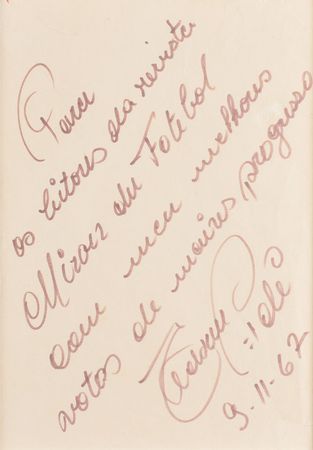 Para
os leitores da revista
Miroir du Futebol
com meus melhores
votos de maiores progresso
Edson = Pelé
9-11-67